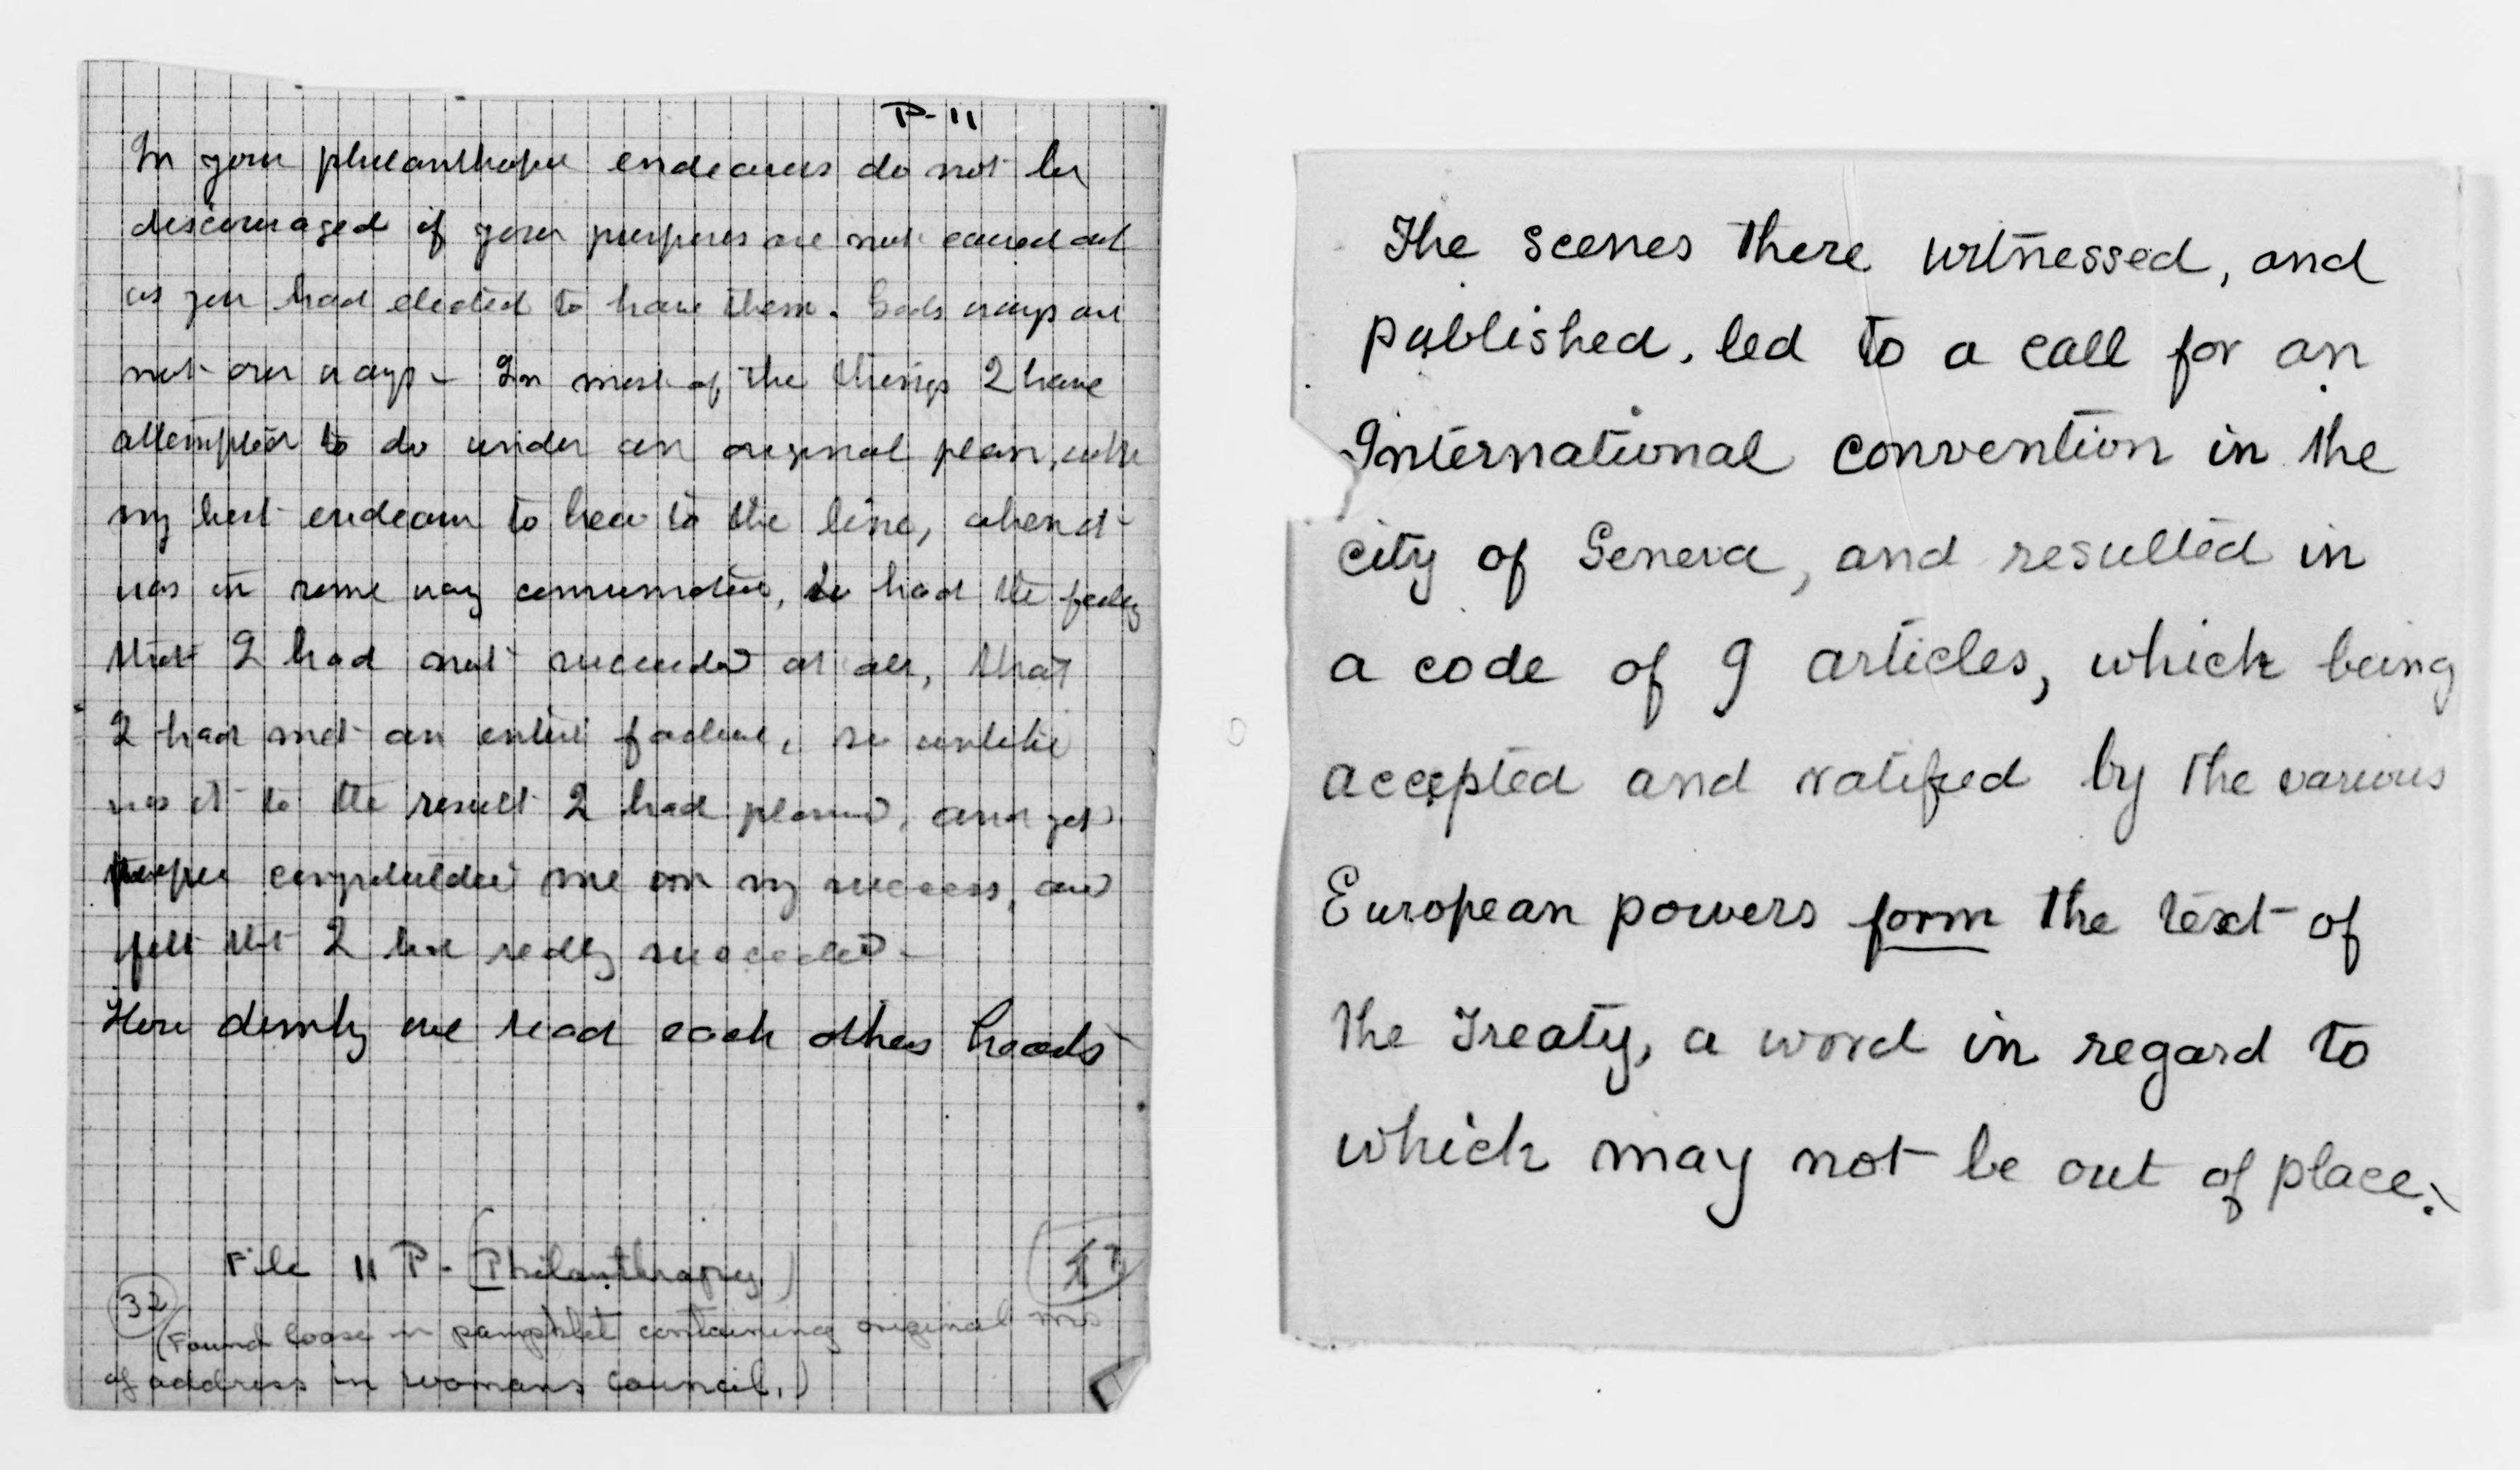 P-11
In your philanthropic endeavors do not be
discouraged if your purposes are not carried out
as you had elected to have them. Gods ways are
not our ways - In most of the things I have
attempted to do under an original plan, with
my best endeavor to hew to the line, when it
was in some way consummated, had the feeling
that I had not succeeded at all, that
I had met an entire failure, so unlike
was it to the result I had planned, and yet
people congratulated me on my success, and
felt that I had really succeeded -
How dimly we read each others
File 11 P- (Philanthropy)
32
(Found loose in pamphlet containing original ms
of address in womans council.)
The scenes there witnessed, and
published, led to a call for an
International convention in the
city of Geneva, and resulted in
a code of 9 articles, which being
accepted and ratified by the various
European powers form the text of
the Treaty, a word in regard to
which may not be out of place.